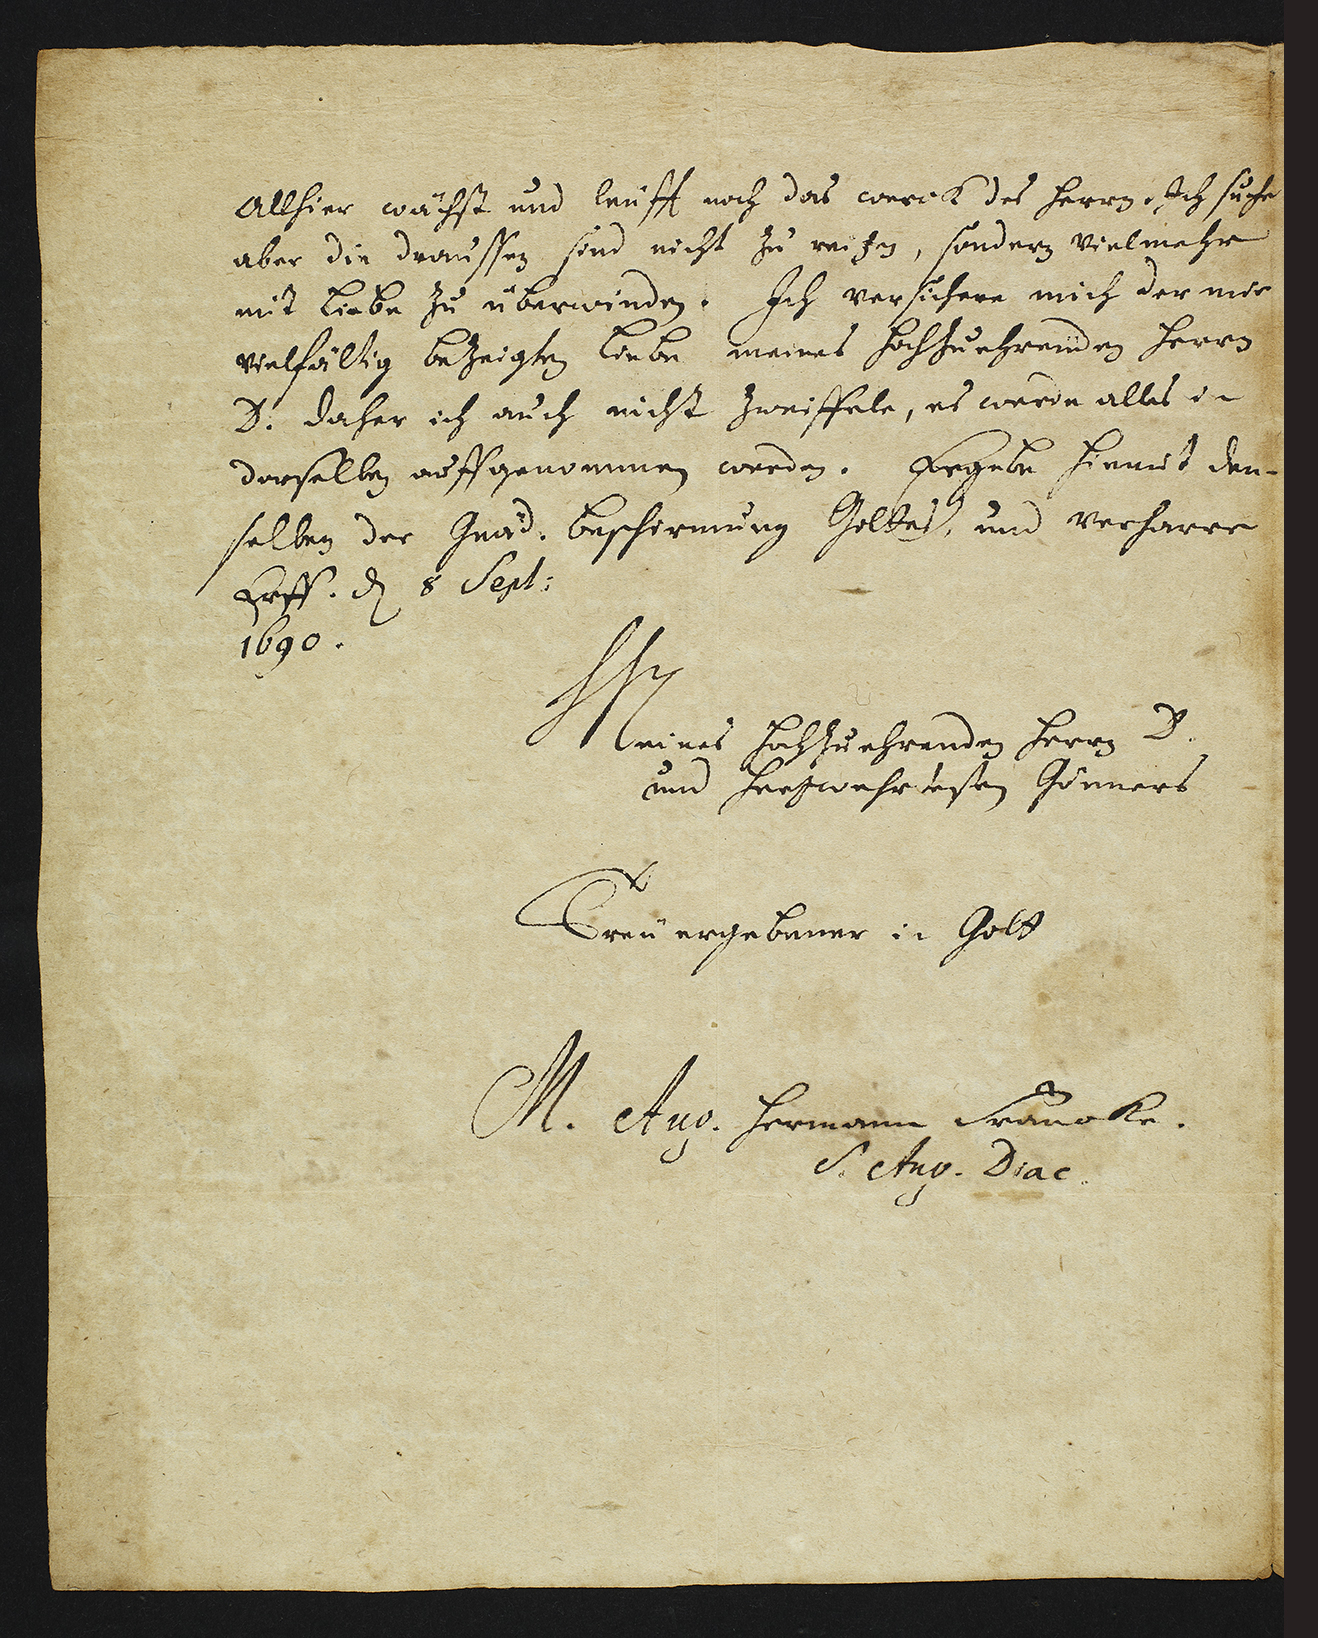 Allhier wächst und leufft noch das werck des Herrn. Ich suche
aber die draussen sind nicht zu reitzen, sondern vielmehr
mit Liebe zu überwinden. Ich versichere mich der mir
vielfältig bezeigten Liebe meines Hochzuehrenden Herrn
D. daher ich auch nicht zweiffele, es werde alles in
derselben auffgenommen werden. Ergebe hiemit den-
selben der Gnäd. beschirmung Gottes, und verharre
Erff. d 8 Sept:
1690.
Meines Hochzuehrenden Herrn D.
und Hertzwehrtesten Gönners
Treu ergebener in Gott
M. Aug. Hermann Francke.
S. Aug. Diac.